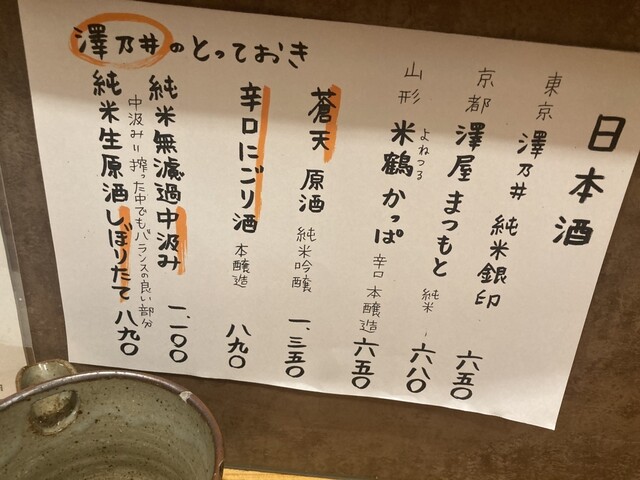 日本酒
東京 澤乃井 純米銀印 六五〇
京都 澤屋まつもと 純米 六八〇
山形 米鶴 かっぱ 辛口 本醸造 六五〇
よねつる
澤乃井のとっておき
蒼天 原酒 純米吟醸 一、三五〇
辛口にごり酒 本醸造 八九〇
純米無濾過中汲み 一、一〇〇
中汲み=搾った中でもバランスの良い部分
純米生原酒しぼりたて 八九〇